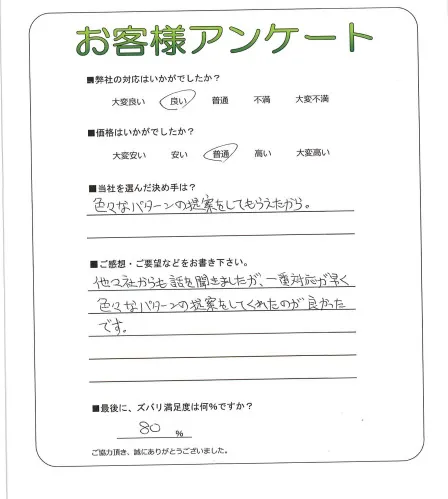 お客様アンケート
■弊社の対応はいかがでしたか？
大変良い 良い 普通 不満 大変不満
■価格はいかがでしたか？
大変安い 安い 普通 高い 大変高い
■当社を選んだ決め手は？
色々なパターンの提案をしてもらえたから。
■ご感想・ご要望などをお書き下さい。
他々社からも話を聞きましたが、一番対応が早く
色々なパターンの提案をしてくれたのが良かった
です。
■最後に、ズバリ満足度は何％ですか？
80 ％
ご協力頂き、誠にありがとうございました。